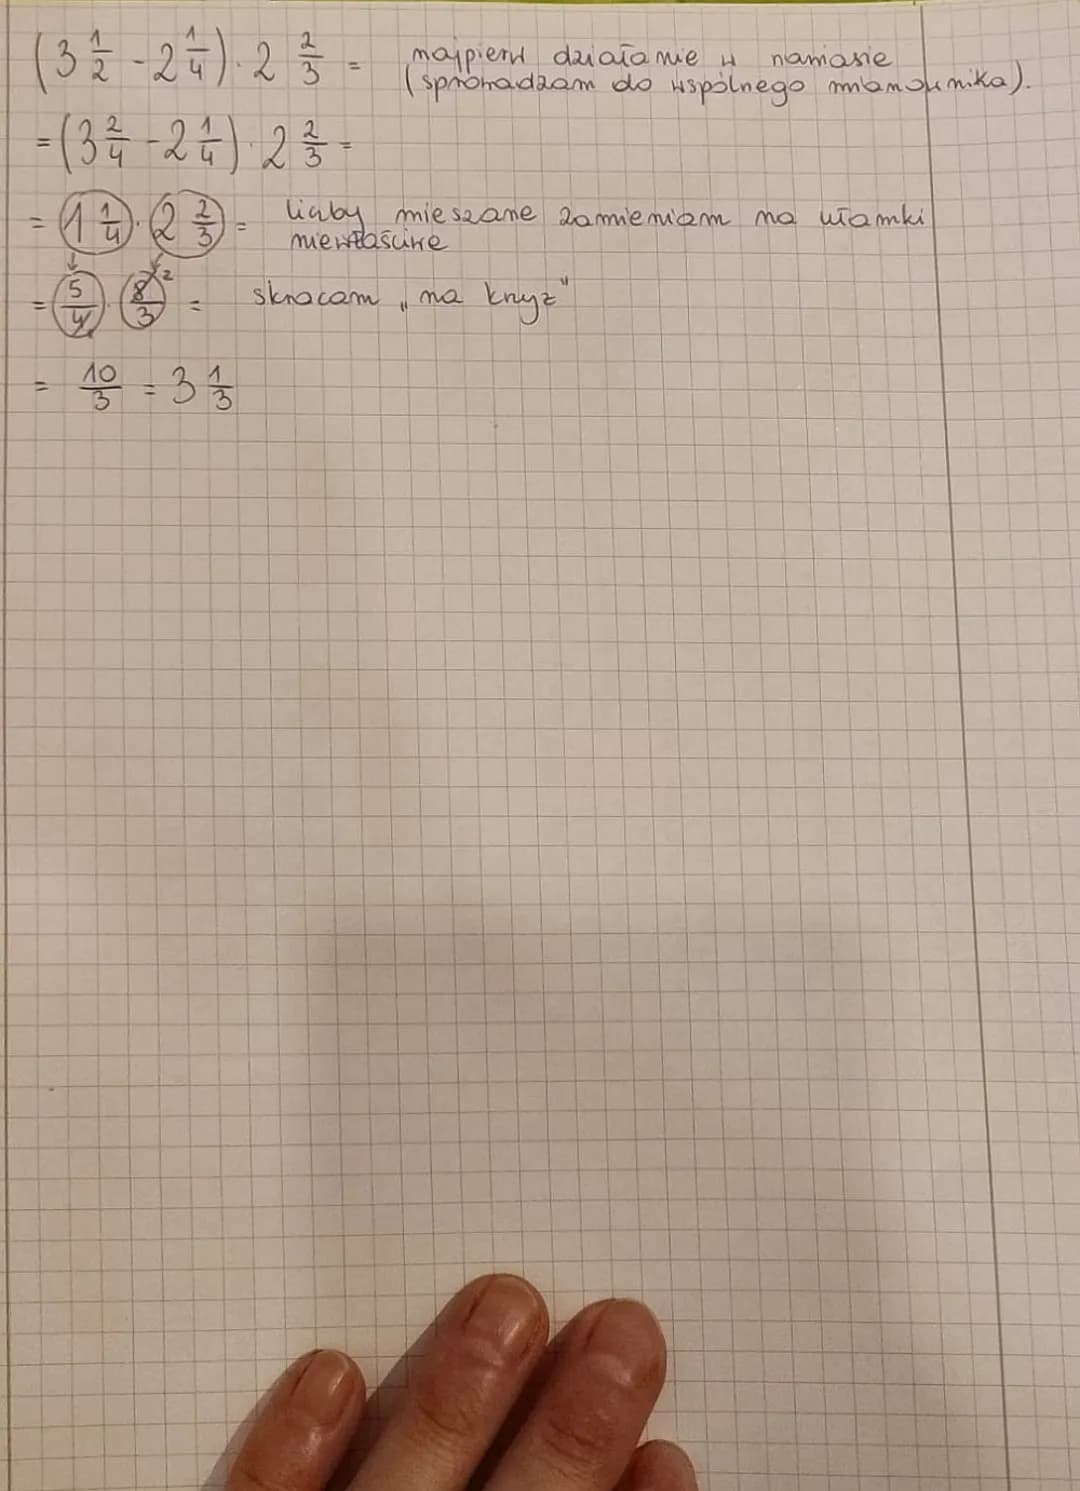 (3 1/2 - 2 1/4) · 2 2/3 = najpierw działanie w nawiasie
(sprowadzam do wspólnego mianownika).
= (3 2/4 - 2 1/4) · 2 2/3 =
= 1 1/4 · 2 2/3 = liczby mieszane zamieniam na ułamki
niewłaściwe
= 5/4 · 8/3 2 = skracam „na krzyż"
= 10/3 = 3 1/3